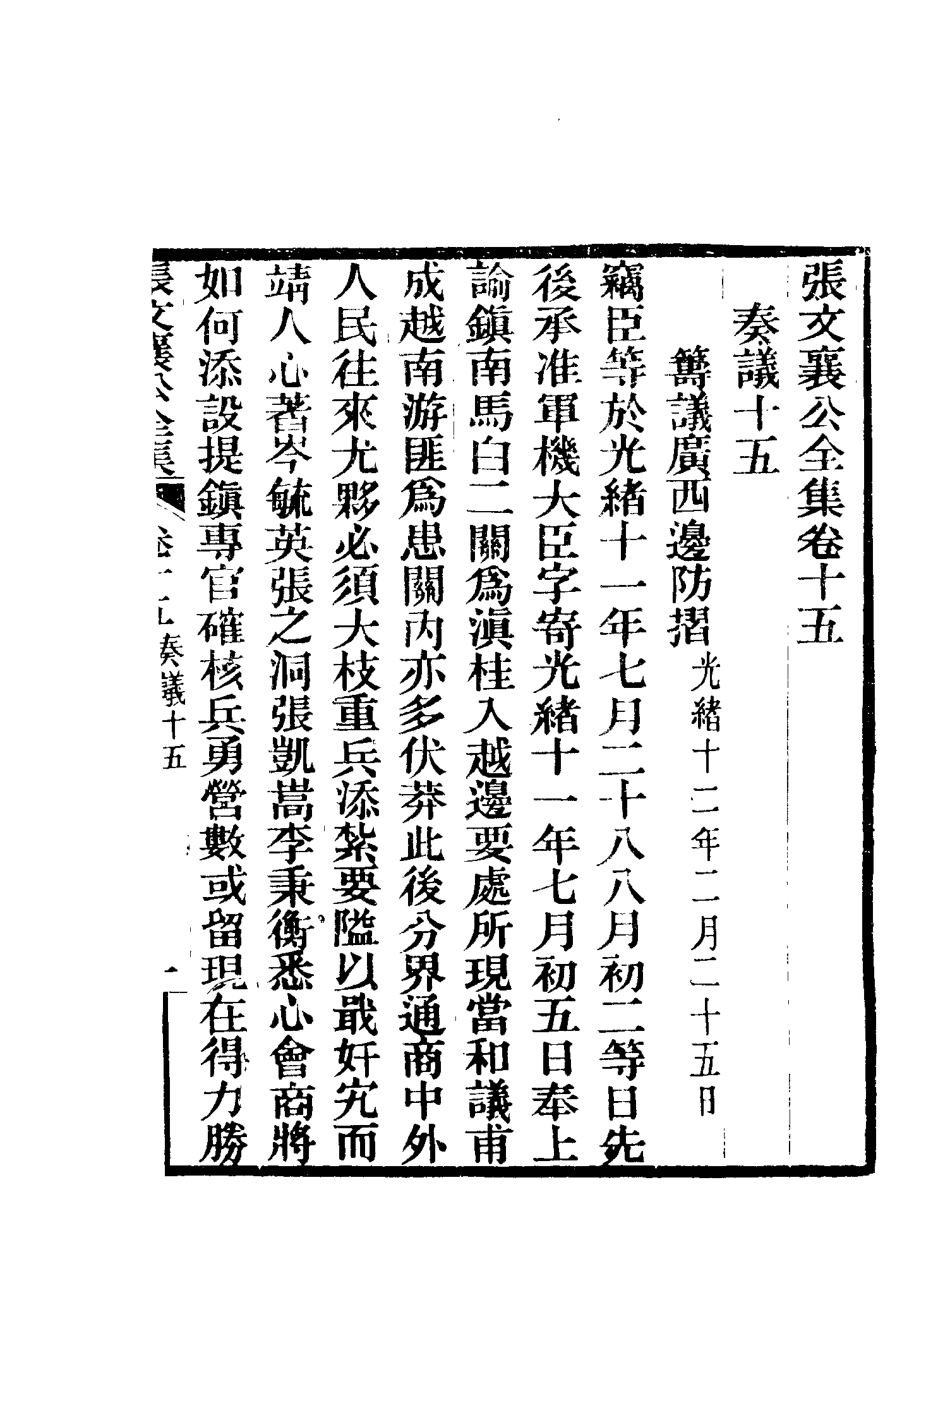 張文襄公全集卷十五
奏議十五
籌議廣西邊防摺光緒十二年二月二十五日
竊臣等於光緒十一年七月二十八八月初二等日先
後承准軍機大臣字寄光緒十一年七月初五日奉上
諭鎭南馬白二關爲滇桂入越邊要處所現當和議甫
成越南游匪爲患關內亦多伏莽此後分界通商中外
人民往來尤夥必須大枝重兵添紮要隘以戢奸宄而
靖人心著岑毓英張之洞張凱嵩李秉衡悉心會商將
如何添設提鎭專官確核兵勇營數或留現在得力勝
張文襄公全集 卷十五 奏議十五 一